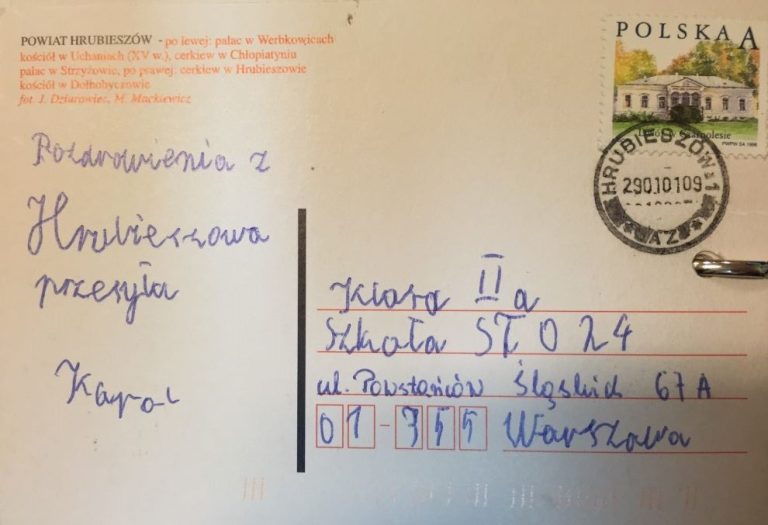 POWIAT HRUBIESZÓW - po lewej: pałac w Werbkowicach
kościół w Uchaniach (XV w.), cerkiew w Chłopiatyniu
pałac w Strzyżowie, po prawej: cerkiew w Hrubieszowie
kościół w Dołhobyczowie
fot. J. Dziurowiec, M. Mackiewicz
POLSKA A
PWPW SA 1998
HRUBIESZÓW 1
290.10109
Pozdrowienia z
Hrubieszowa
przesyła
Karol
Klasa II a
Szkoła STO 24
ul. Powstańców Śląskich 67 A
01-355 Warszawa